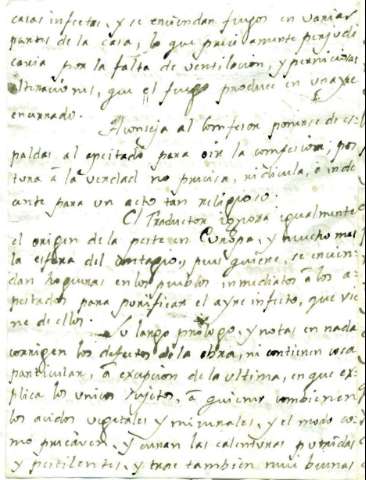 casas infectas, y se enciendan fuegos en varias
partes de la casa, lo que precisamente perjudi
caria por la falta de ventilacion, y perniciosas
alteraciones, que el fuego produce en un ayre
encerrado.
Aconseja al Confesor ponerse de es
paldas al apestado para oir la confesion; pos
tura à la verdad no precisa, ridicula, è inde
cente para un acto tan religioso.
El Traductor ignora igualmente
el origen de la peste en Europa, y mucho mas
la esfera del contagio, pues quiere, se encien
dan hogueras en los pueblos inmediatos à los a
pestados para purificar el ayre infecto, que vie
ne de ellos.
Su largo prologo, y notas en nada
corrigen los defectos de la obra, ni contienen cosa
particular, à excepcion de la ultima, en que ex
plica los unicos sujetos, à quienes combienen
los acidos vegetales y minerales, y el modo co
mo precaven, y curan las calenturas putridas
y pestilentes, y trae tambien mui buenas